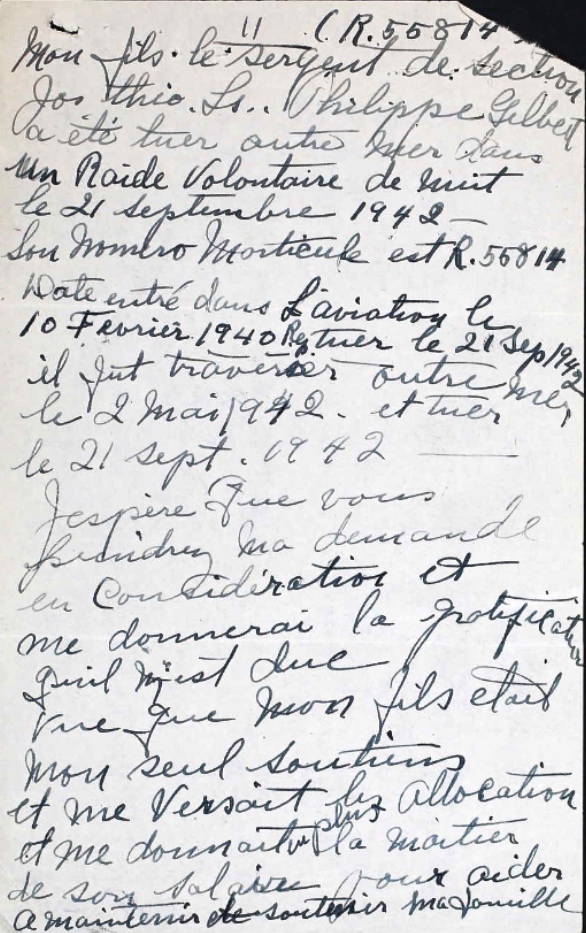 11 (R.55814
Mon fils le sergent de Section
Jos théo. Ls.. Philippe Gilbert
a été tuer outre mer dans
Un Raide Volontaire de nuit
le 21 septembre 1942 —
Son Noméro Morticule est R.55814
Date entré dans L'aviation le
10 Fevrier 1940 tuer le 21 Sep 1942
il fut traverser outre mer
le 2 Mai 1942. et tuer
le 21 sept. 1942 ——
Jespère que vous
prendrez ma demande
en Considération et
me donnerai la gratification
quil m'est due
vue que mon fils etait
mon seul soutiens
et me Versait les Allocation
et me donnait plus la moitier
de son salaire pour aider
a maintenir de soutenir ma famille